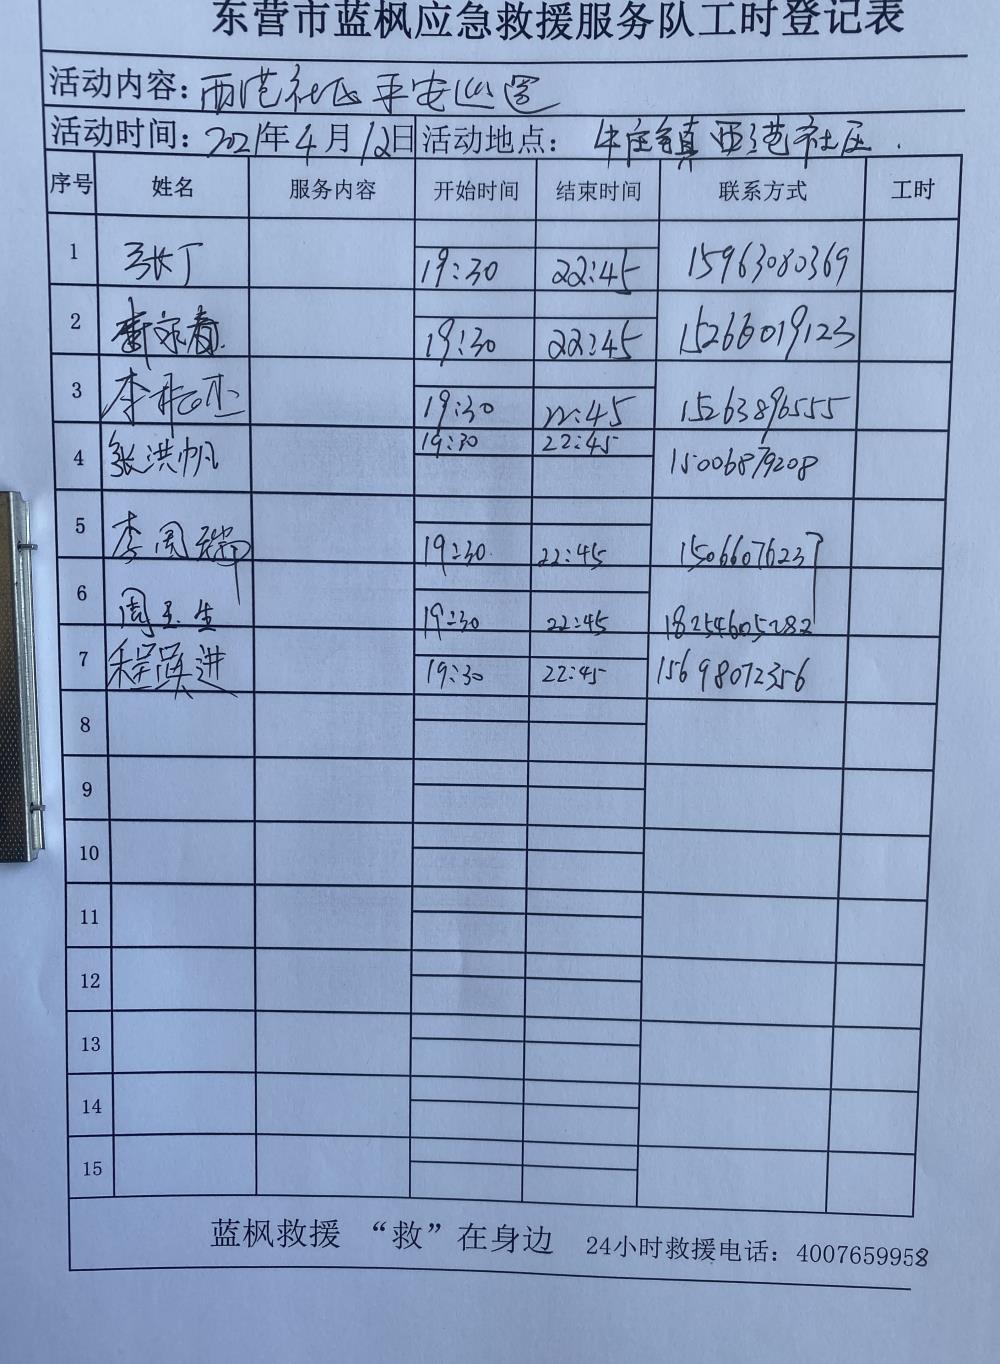 东营市蓝枫应急救援服务队工时登记表
活动内容：西范社区平安巡逻
活动时间：2021年4月12日 活动地点：牛庄镇西范社区.
序号 姓名 服务内容 开始时间 结束时间 联系方式 工时
1 张丁 19:30 22:45 15963080369
2 19:30 22:45 15266019123
3 李 19:30 22:45 15263896555
4 张洪帆 19:30 22:45 15006879208
5 李周瑞 19:30 22:45 15066076237
6 周玉生 19:30 22:45 18254605282
7 程跃进 19:30 22:45 15698072356
8
9
10
11
12
13
14
15
蓝枫救援 “救”在身边 24小时救援电话：4007659958